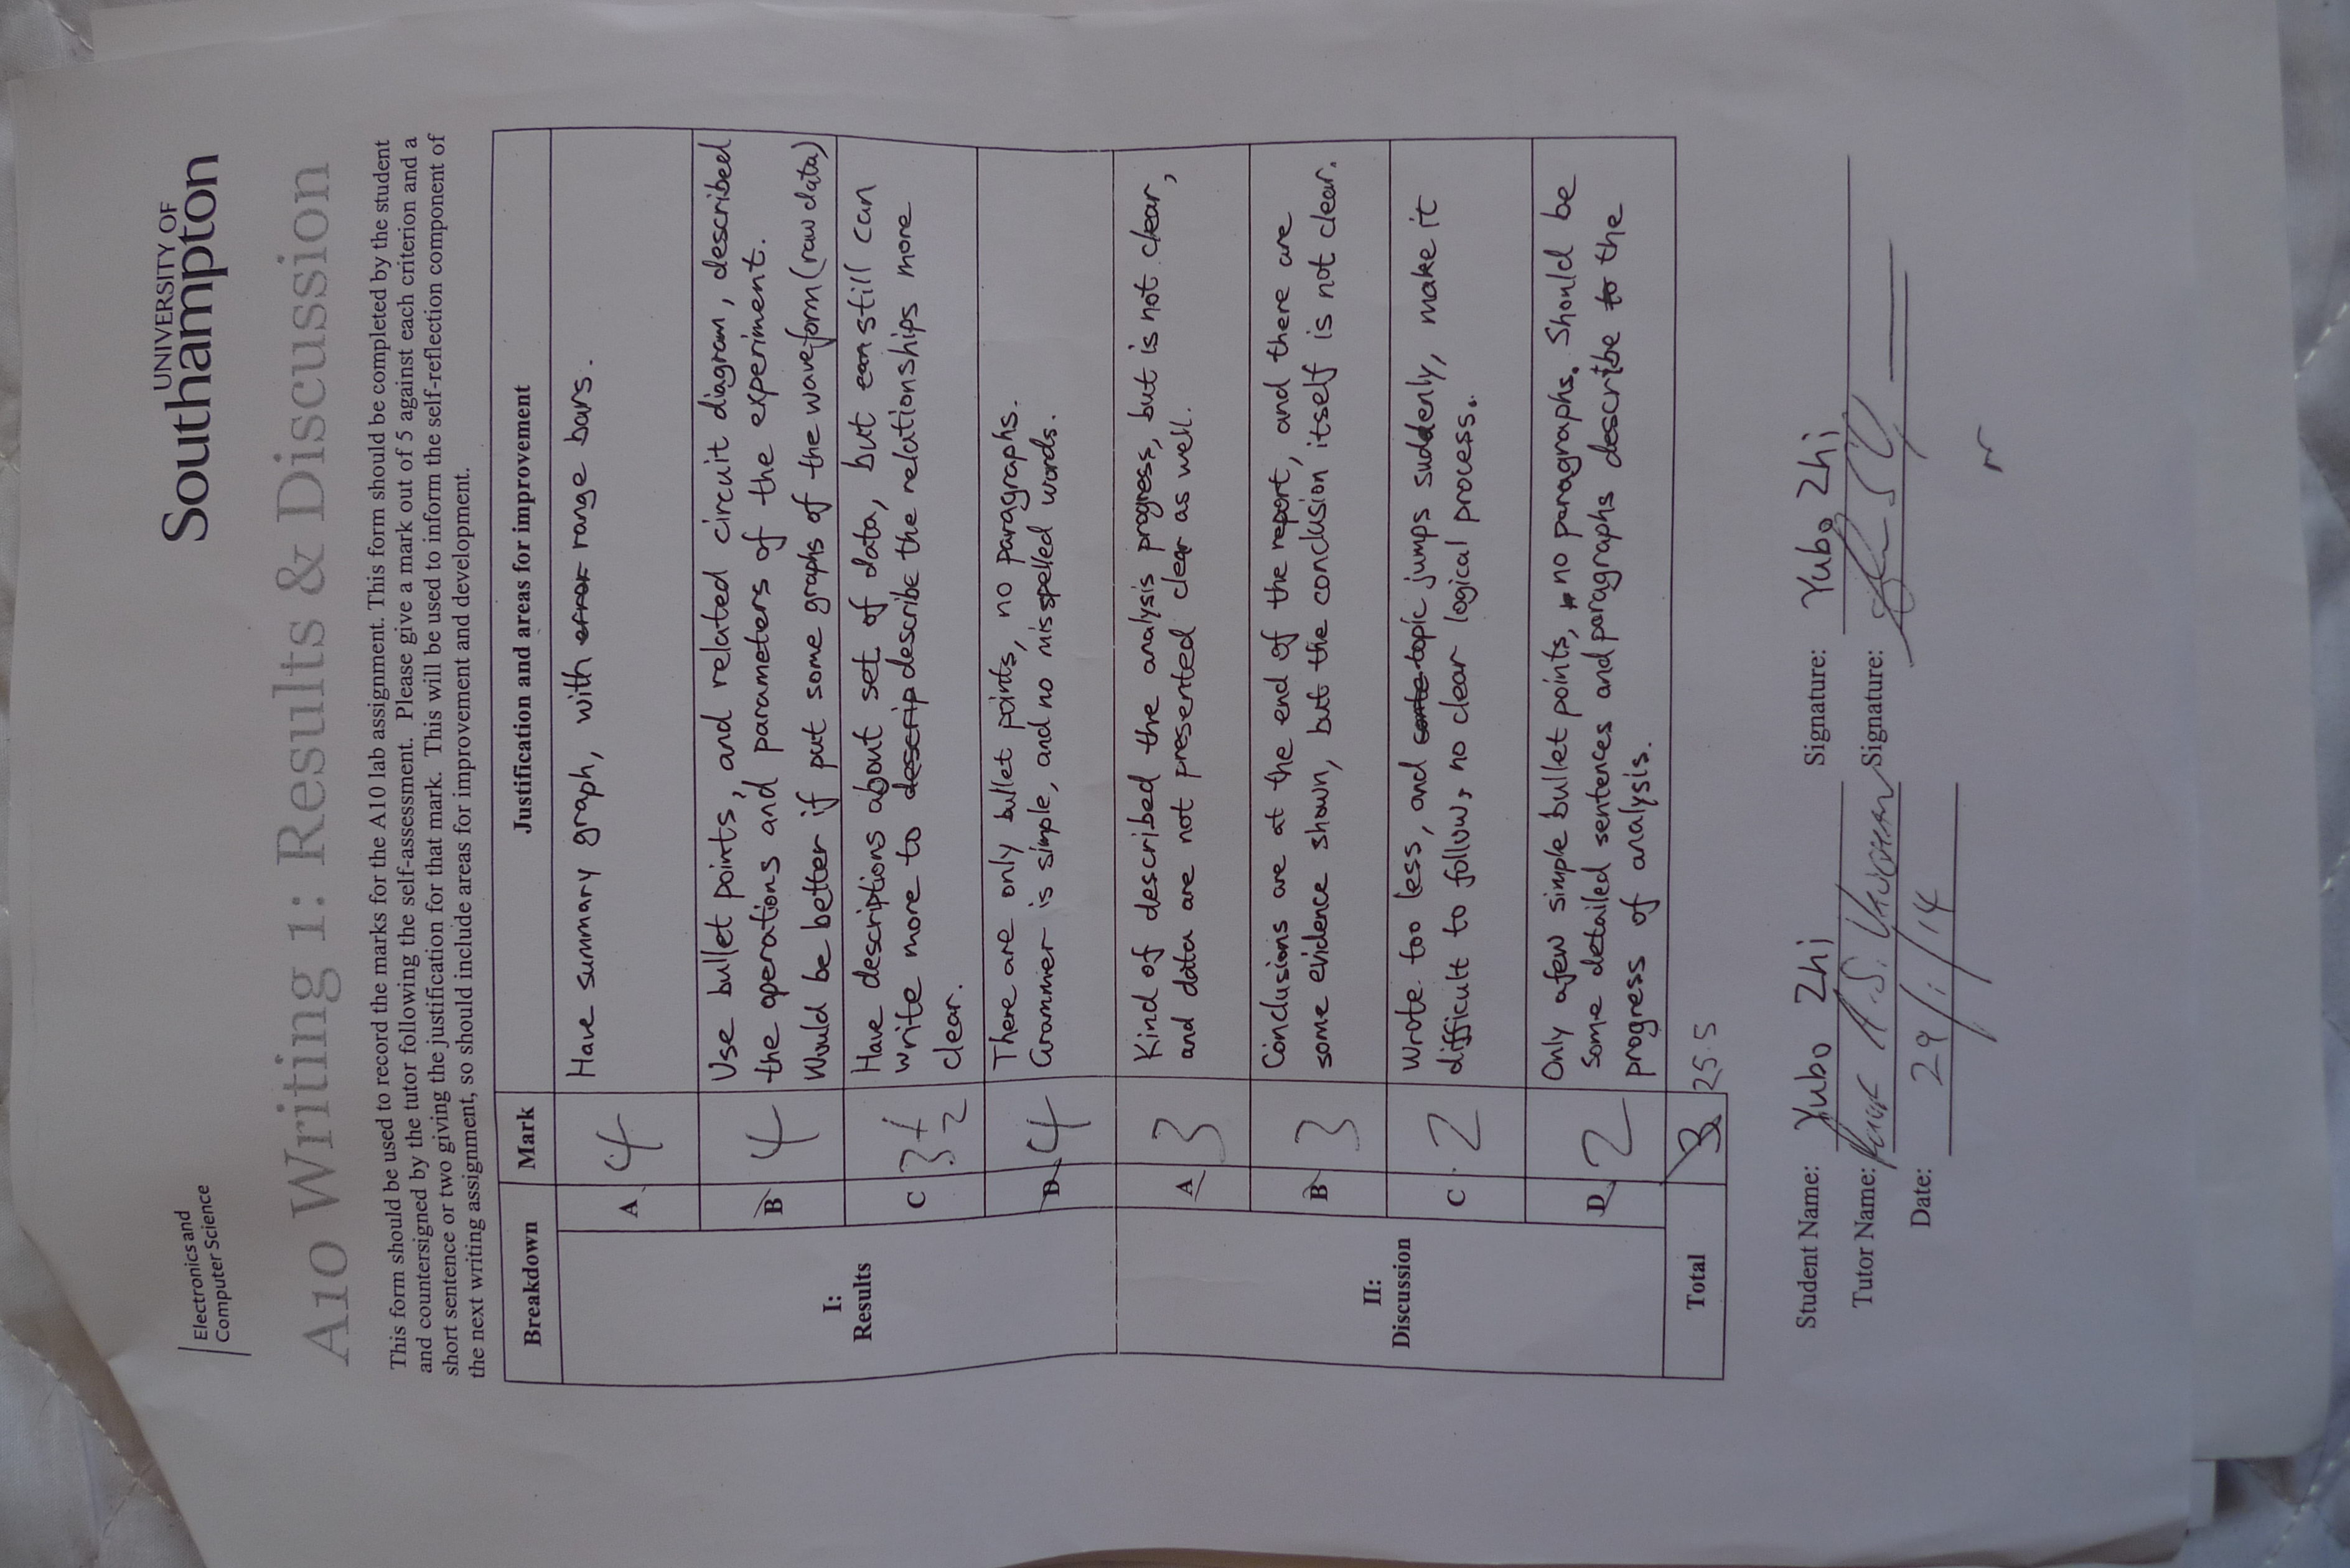 Electronics and
Computer Science
UNIVERSITY OF
Southampton
A10 Writing 1: Results & Discussion
This form should be used to record the marks for the A10 lab assignment. This form should be completed by the student
and countersigned by the tutor following the self-assessment. Please give a mark out of 5 against each criterion and a
short sentence or two giving the justification for that mark. This will be used to inform the self-reflection component of
the next writing assignment, so should include areas for improvement and development.
Breakdown Mark Justification and areas for improvement
I:
Results
A 4
Have summary graph, with error range bars.
B 4
Use bullet points, and related circuit diagram, described
the operations and parameters of the experiment.
Would be better if put some graphs of the waveform (raw data)
C 3 1/2
Have descriptions about set of data, but can still can
write more to descrip describe the relationships more
clear.
D 4
There are only bullet points, no paragraphs.
Grammer is simple, and no misspelled words.
II:
Discussion
A 3
Kind of described the analysis progress, but is not clear,
and data are not presented clear as well.
B 3
Conclusions are at the end of the report, and there are
some evidence shown, but the conclusion itself is not clear.
C 2
Wrote too less, and topic jumps suddenly, make it
difficult to follow, no clear logical process.
D 2
Only a few simple bullet points, no paragraphs. Should be
some detailed sentences and paragraphs describe to the
progress of analysis.
Total 3 25.5
Student Name: Yubo Zhi Signature: Yubo Zhi
Tutor Name: A.S. VAUGHAN Signature:
Date: 29/1/14